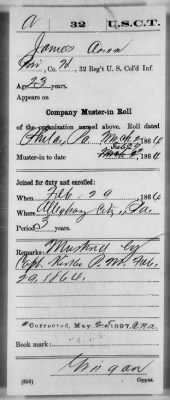 a | 32 | U.S.C.T.
James Aaron
Pri, Co. H, 32 Reg't U. S. Col'd Inf.
Age 23 years.
Appears on
Company Muster-in Roll
of the organization named above. Roll dated
Phila, Pa. Mch 2, 1864.
Feb 29
Muster-in to date March 2, 1864
Joined for duty and enrolled:
When Feb. 29, 1864
Where Alleghany City, Pa.
Period 3 years.
Remarks: Mustered by
Capt. P. M. Feb.
29, 1864.
*Corrected, May 25, 1897.
Book mark:
(356) Copyist.